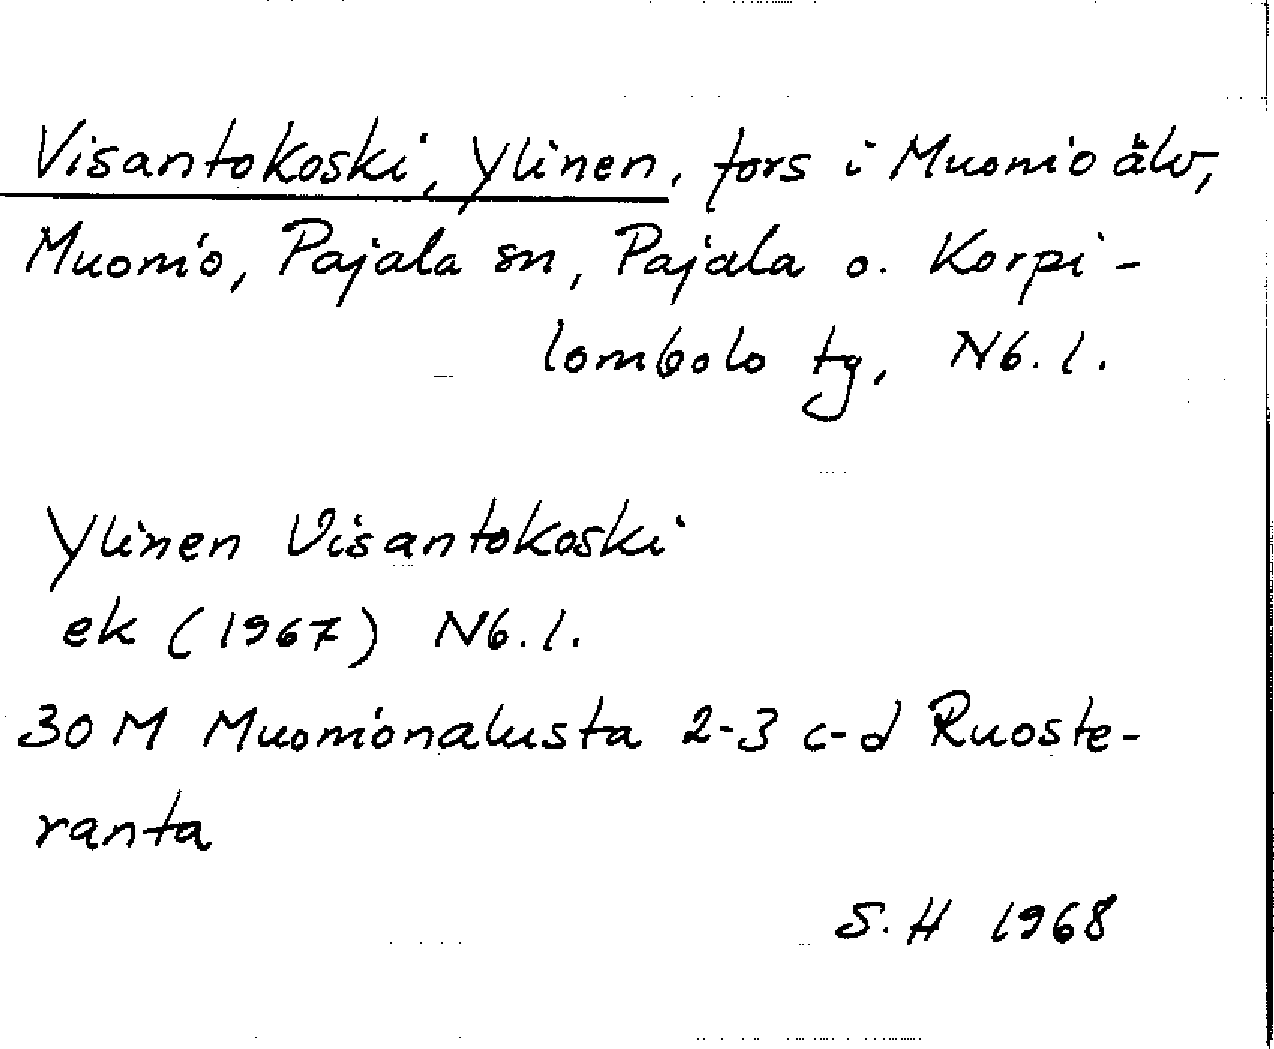 Visantokoski, Ylinen, fors i Muonio älv,
Muonio, Pajala sn, Pajala o. Korpi-
lombolo tg, Nb. l.
Ylinen Visantokoski
ek (1967) Nb. l.
30 M Muonionalusta 2-3 c-d Ruoste-
ranta
S. H 1968